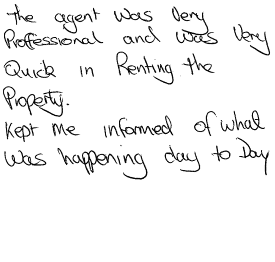 the agent was very
Professional and was very
Quick in Renting the
Property.
Kept me informed of what
was happening day to Day